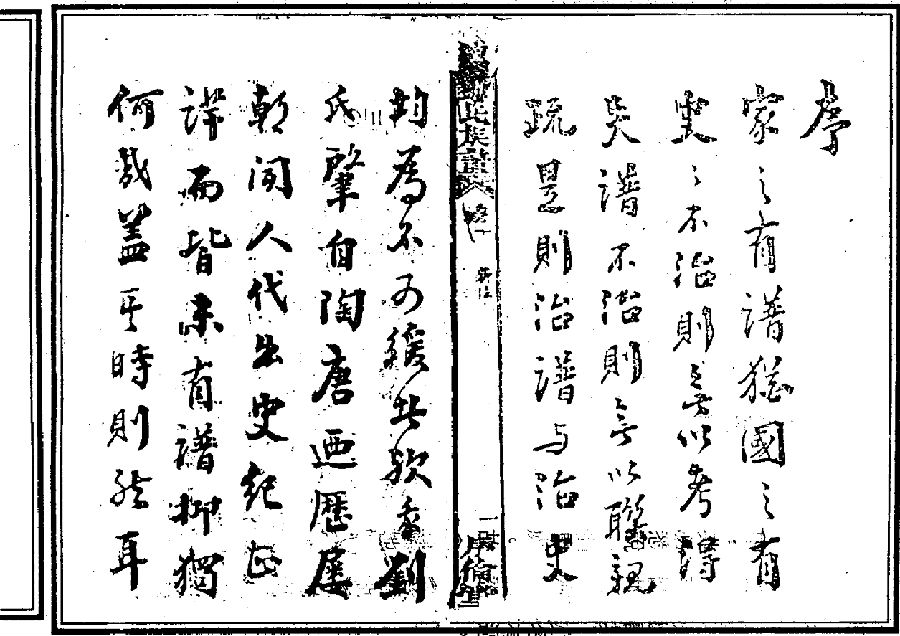 序
家之有譜猶國之有
史々不治則無以考得
失譜不治則無以聯親
疏是則治譜与治史
劉氏族譜 卷一
均為不可緩 欤 劉
氏肇自陶唐迺歷屢
朝聞人代出史紀
而皆未有譜抑獨
何哉蓋其時則然耳